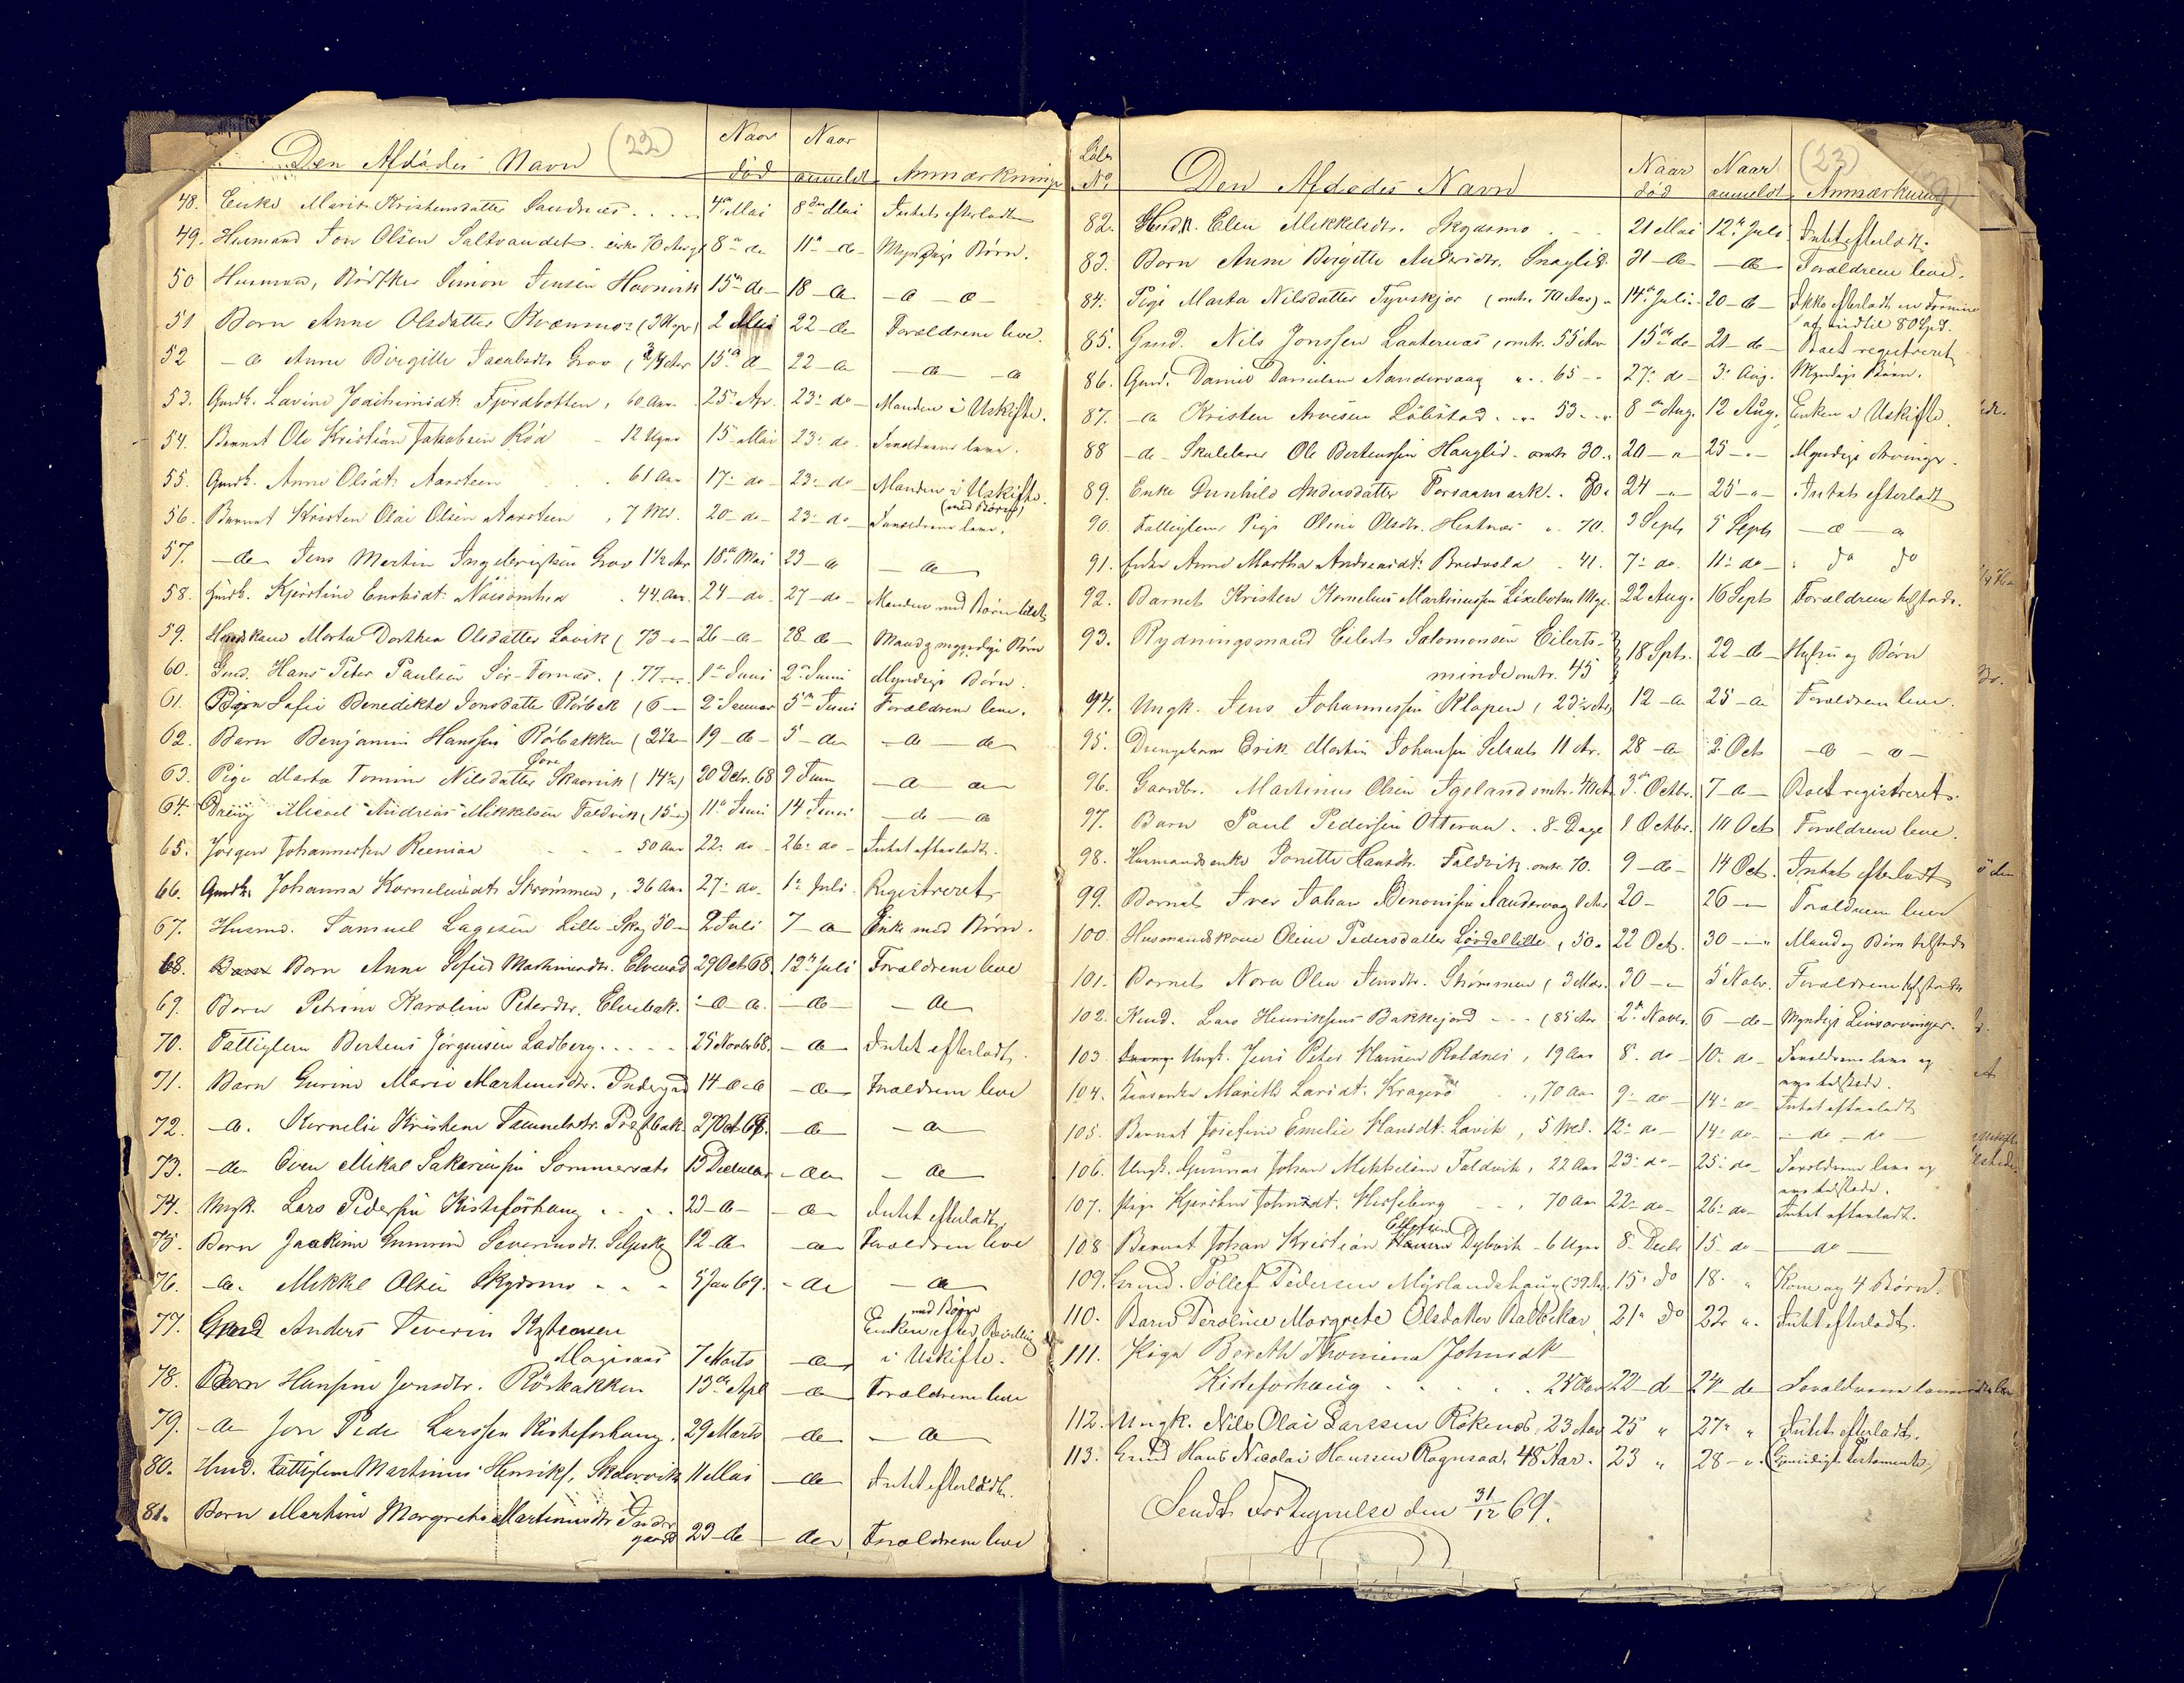 (22)
Den Afdødes Navn Naar død Naar anmeldt Anmærkning
48. Enke Marit Kristensdatter Sandnes 4de Mai 8de Mai Intet efterladt
49. Husmand Jon Olsen Saltvandet cirka 70 Aar 8de do 11te do Myndige Børn.
50 Husmand, Bødtker Simon Jensen Havnvik 15de do 18 do do do
51 Barn Anne Olsdatter Kvænmo (3 Uger) 2 Mai 22 do Forældrene leve.
52 do Anne Birgitte Jacobsdtr Grov (3/4 Aar 15de do 22 do do do
53. Gmdk. Lavine Joachimsdt. Fjordbotten, 60 Aar 25de Apr. 23de do Manden i Uskifte.
54. Barnet Ole Kristian Jakobsen Rød 12 Uger 15 Mai 23de do Forældrene leve.
55. Gmdk. Anne Olsdt. Aarsteen 61 Aar 17de do 23de do Manden i Uskifte.
(med Børn)
56. Barnet Kristen Olai Olsen Aarsteen, 7 Md. 20de do 23de do Forældrene leve.
57. do Jens Martin Ingebrigtsen Grov 1 1/2 Aar 18de Mai 23 do do
58. Gmdk. Kjerstine Enoksdt. 44 Aar. 24 do 27 do Manden med Børn
59. Husmdskone Marta Dorthea Olsdatter Lavik (73 26 do 28 do Mand & myndige Børn
60. Gmd. Hans Peter Paulsen Sør-Fornæs. (77 1ste Juni 2de Juni Myndige Børn.
61. Barn Sofie Benedikte Jonsdatter Rørbak (6 2de Januar 5te Juni Forældrene leve.
62. Barn Benjamin Hanssen Rørbakken (2 1/2 19 do 5 do do do
63. Pige Marta Tomine Nilsdatter Skavvik (14 20 Decbr. 68 9 Juni do do
64. Dreng Mikael Andreas Mikkelsen Faldvik (15 11te Juni 14 Juni do do
65. Jørgen Johannessen Reeniaa 50 Aar 22de do 26de do Intet efterladt.
66. Gmdk. Johanna Korneliusdt. Strømmen, 36 Aar 27de do 1ste Juli Registreret
67. Husmd. Samuel Lagesen Lille Skog 50 2 Juli 7 do Enke med Børn.
68. Barn Anne Sofie Mathiusdtr. Elvenæs 29 Oct 68. 12te Juli Forældrene leve
69. Barn Petrine Karoline Petersdtr. Elvebak. do do do do
70. Fattiglem Berteus Jørgensen Ladberg. 25 Novbr 68. do Intet efterladt.
71. Barn Gurine Marie Martinusdtr. Indergaard 14 do do do Forældrene leve
72. do. Kornelie Kristene Samuelsdtr. Præstbak. 27 Oct 68. do do
73. do Even Mikal Sakariassen Sommersæt 13 December do do
74. Ungk. Lars Pedersen Kisteforhaug 23 do do Intet efterladt
75. Barn Joakime Gunerine Severinsdt. Seljeskog 12 do do Forældrene leve
76. do. Mikkel Olsen Skydsmo 5 Jan 69. do do
med Børn
77. Gmd Anders Severin Kristensen Enken efter Bevilling
7 Marts do i Uskifte.
78. Barn Hansine Jonsdtr. Rørbakken 13de Apl do Forældrene leve
79. do Jon Peder Larssen Kisteforhaug, 29 Marts do do
80. Husmd. Fattiglem Martinus Henriks. Skavvik 11 Mai do Intet efterladt.
81. Barn Martine Margrete Martinusdtr Inder
gaard 23 do do Forældrene leve
(23)
Løbe No. Den Afdødes Navn Naar død Naar anmeldt Anmærkning
82. Husmdk. Elen Mikkelsdtr. Skydsmo 21 Mai 12te Juli Intet efterladt.
83. Barn Anne Birgitte Andersdtr. Snaglid 31 do do Forældrene leve.
84. Pige Marta Nilsdatter Tyvskjær (omtr. 70 Aar) 14de Juli 20 do Ikke efterladt en Formue
af indtil 80 Spd.
85. Gmd. Nils Jonssen Laaternæs, omtr. 55 Aar 15de do 21 do Boet registreret
86. Gmd. Daniel Danielsen Aandervaag 65 27de do 3de Aug. Myndige Børn.
87. do Kristen Arnesen Løbstad 53 8de Aug. 12 Aug. Enken i Uskifte.
88 do Skolelærer Ole Bertenssen Hauglid omtr 30. 20 25 Myndige Arvinger.
89. Enke Gunhild Andersdatter Forsaamark. 80 24 25 Intet efterladt
90. Fattiglem Pige Oline Olsdtr. Hestnæs 70. 3 Septb 5 Septb do do
91. Enke Anne Martha Andreasdt. Bredvola 41. 7de do. 11te do do do
92. Barnet Kristen Kornelius Martinussen 22 Aug. 16 Septb Forældrene tilstede.
93. Rydningsmand Eilert Salomonsen Eilerts-
minde omtr. 45 18 Sptb. 22 do Hustru og Børn
94. Ungk. Jens Johannessen Klapen (23 1/2 Aar) 12 do 25 do Forældrene leve.
95. Drengebarn Erik Martin Johansen Selsæt 11 Ar. 28 do 2 Oct do do
96. Gaardbr. Martinus Olsen Igeland omtr. 40 Aar 3de Octbr. 7 do Boet registreret.
97. Barn Paul Pedersen Otteraa 8 Dage 1 Octbr. 10 Oct Forældrene leve.
98. Husmandsenke Jonette Hansdtr. Faldvik omtr. 70. 9 do 14 Oct. Intet efterladt
99. Barnet Iver Johan Benonissen Aandervag 20 26 Forældrene leve
100. Husmandskone Oline Pedersdatter Løvdal lille, 50 22 Oct. 30 Mand og Børn tilstede
101. Barnet Nora Olea Jensdtr. Strømmen (3 Mdr. 30 5 Novbr. Forældrene tilstede
102. Lars Henriksens Bakkejord (85 Aar 2de Novbr. 6 do Myndige Livsarvinger.
103. Ungk. Jens Peter Hansen Roldnes, 19 Aar 8de do 10de do Forældrene leve og
ere tilstede.
104. Marith Larsdt. Kragerø, 70 Aar 9de do 14de do Intet efterladt
105. Barnet Josefine Emelie Hansdt. Lavik, 5 Md. 12te do 14de do do do
106. Ungk. Gunnar Johan Mikkelsen Faldvik, 22 Aar 23de do 25de do Forældrene leve og
ere tilstede.
107. Pige Kjerstine Johnsdt. 70 Aar 22de do 26de do Intet efterladt.
108 Barnet Johan Kristian Ellefsen Dybvik 6 Uger 8de Decbr 15de do do
109. Gmd. Tollef Pedersen Myrlandshaug (39 Aar 15de do 18 Kone og 4 Børn.
110. Barn Peroline Margrete Olsdatter Balbekar, 21de do 22 Intet efterladt.
111. Piga Bereth Thomina Johnsdt
Kisteforhaug 24 Aar 22 do 24 do Forældrene leve
112. Ungk. Nils Olai Larssen Rokenes, 23 Aar 25 27de Intet efterladt.
113. Gmd Hans Nicolai Hanssen Rognsaa, 48 Aar. 23 28 Gjensidigt Testamente
Sendt Fortegnelse den 31/12 69.